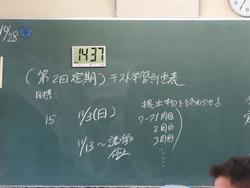 10/28
14:37
(第2回定期)テスト学習計画表
目標:
15
11/3(日)
11/13〜諸活動
停止
提出物を終わらせる
1回目
2回目
3回目